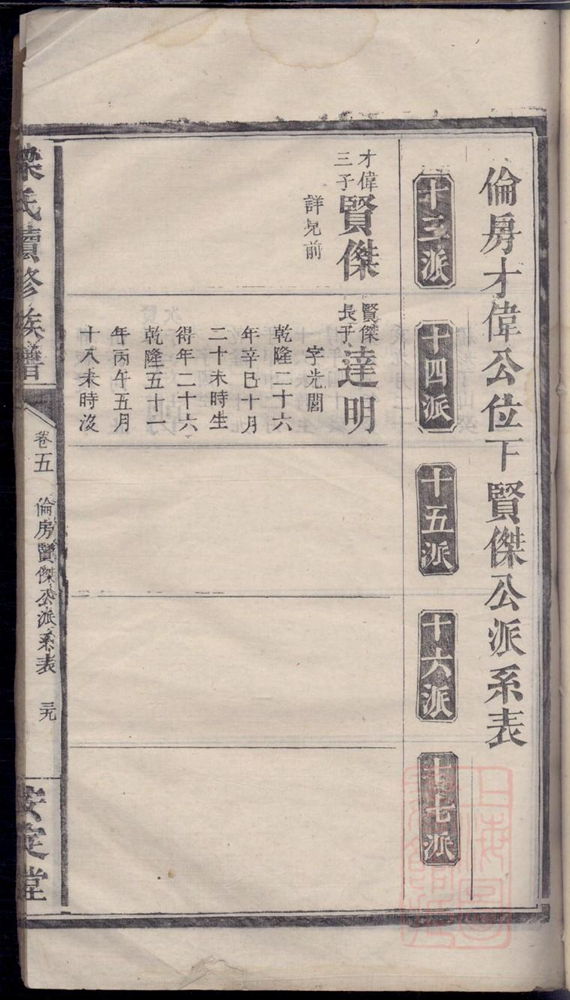 倫房才偉公位下賢傑公派系表
十三派
十四派
十五派
十六派
十七派
才偉三子
賢傑
詳見前
賢傑長子
達明
字光閭
乾隆二十六
年辛巳十月
二十未時生
得年二十六
乾隆五十一
年丙午五月
十八未時沒
梁氏續修族譜
卷五
倫房賢傑公派系表
三九
安定堂